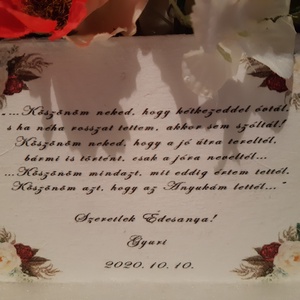 „...Köszönöm neked, hogy kétkezeddel óvtál,
s ha néha rosszat tettem, akkor sem szóltál!
Köszönöm neked, hogy a jó útra tereltél,
bármi is történt, csak a jóra neveltél...
...Köszönöm mindazt, mit eddig értem tettél,
Köszönöm azt, hogy az Anyukám lettél...”
Szeretlek Édesanya!
Gyuri
2020. 10. 10.